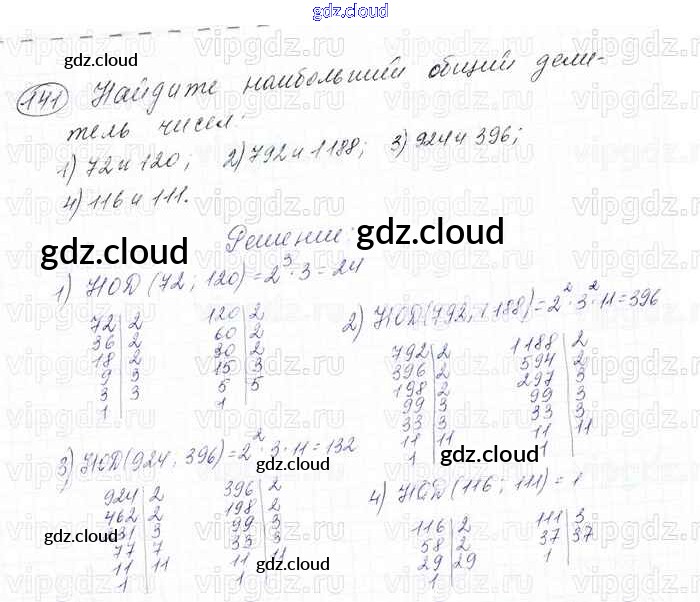 gdz.cloud
141 Найдите наибольший общий дели-
тель чисел:
1) 72 и 120; 2) 792 и 1188; 3) 924 и 396;
4) 116 и 111.
Решение:
gdz.cloud gdz.cloud
1) НОД (72; 120) = 2³ · 3 = 24
72 | 2
36 | 2
18 | 2
9 | 3
3 | 3
1
120 | 2
60 | 2
30 | 2
15 | 3
5 | 5
1
2) НОД (792; 1188) = 2² · 3² · 11 = 396
792 | 2
396 | 2
198 | 2
99 | 3
33 | 3
11 | 11
1
1188 | 2
594 | 2
297 | 3
99 | 3
33 | 3
11 | 11
1
3) НОД (924; 396) = 2² · 3 · 11 = 132
924 | 2
462 | 2
231 | 3
77 | 7
11 | 11
1
396 | 2
198 | 2
99 | 3
33 | 3
11 | 11
1
4) НОД (116; 111) = 1
116 | 2
58 | 2
29 | 29
1
111 | 3
37 | 37
1